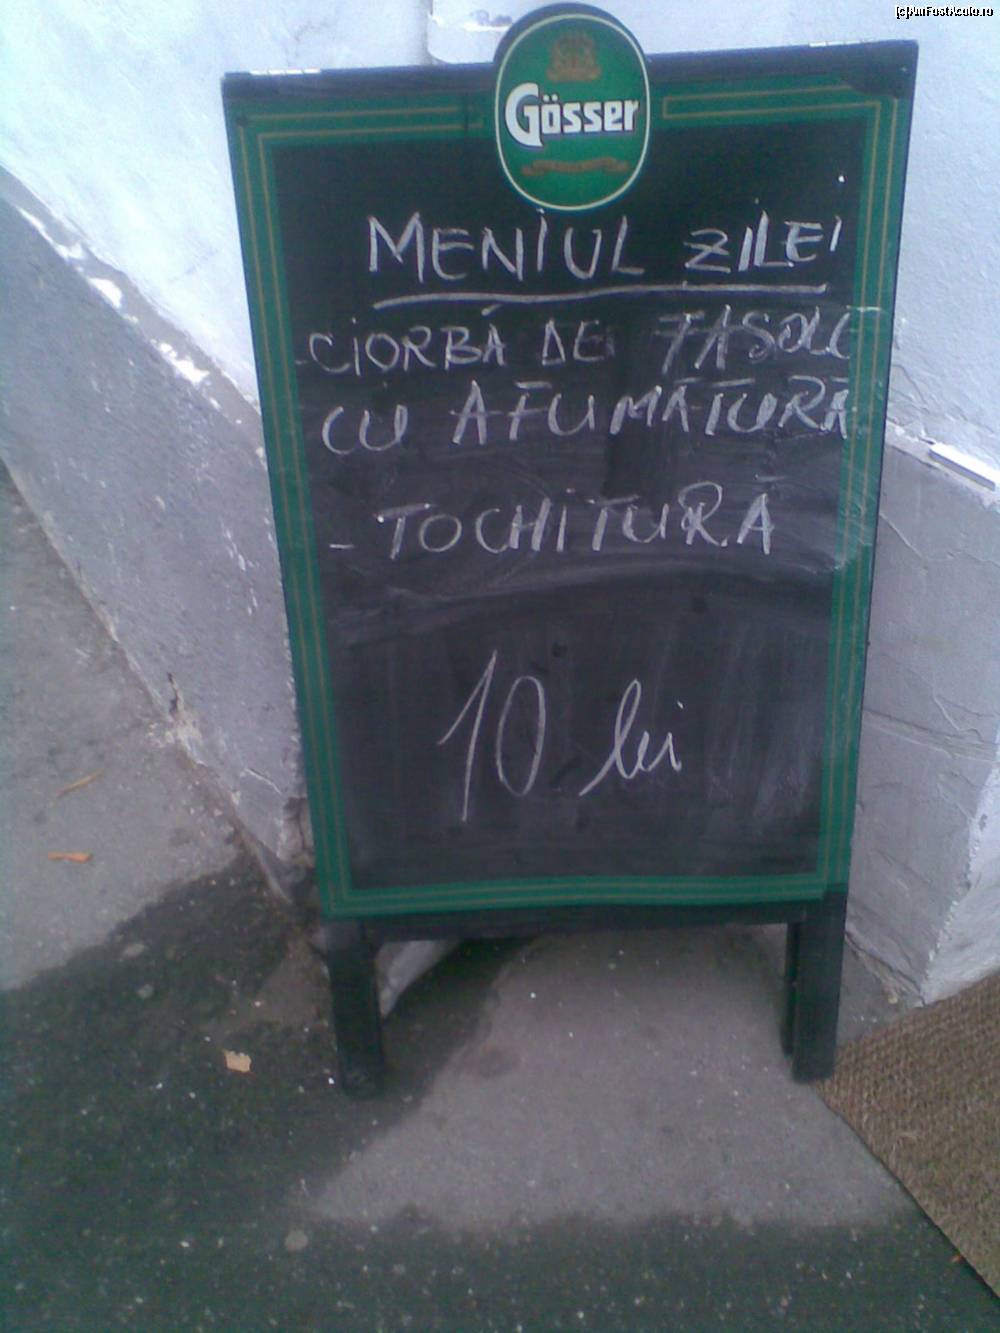 [c]AmFostAcolo.ro
Gösser
MENIUL ZILEI
-CIORBĂ DE FASOLE
CU AFUMĂTURĂ
- TOCHITURĂ
10 lei